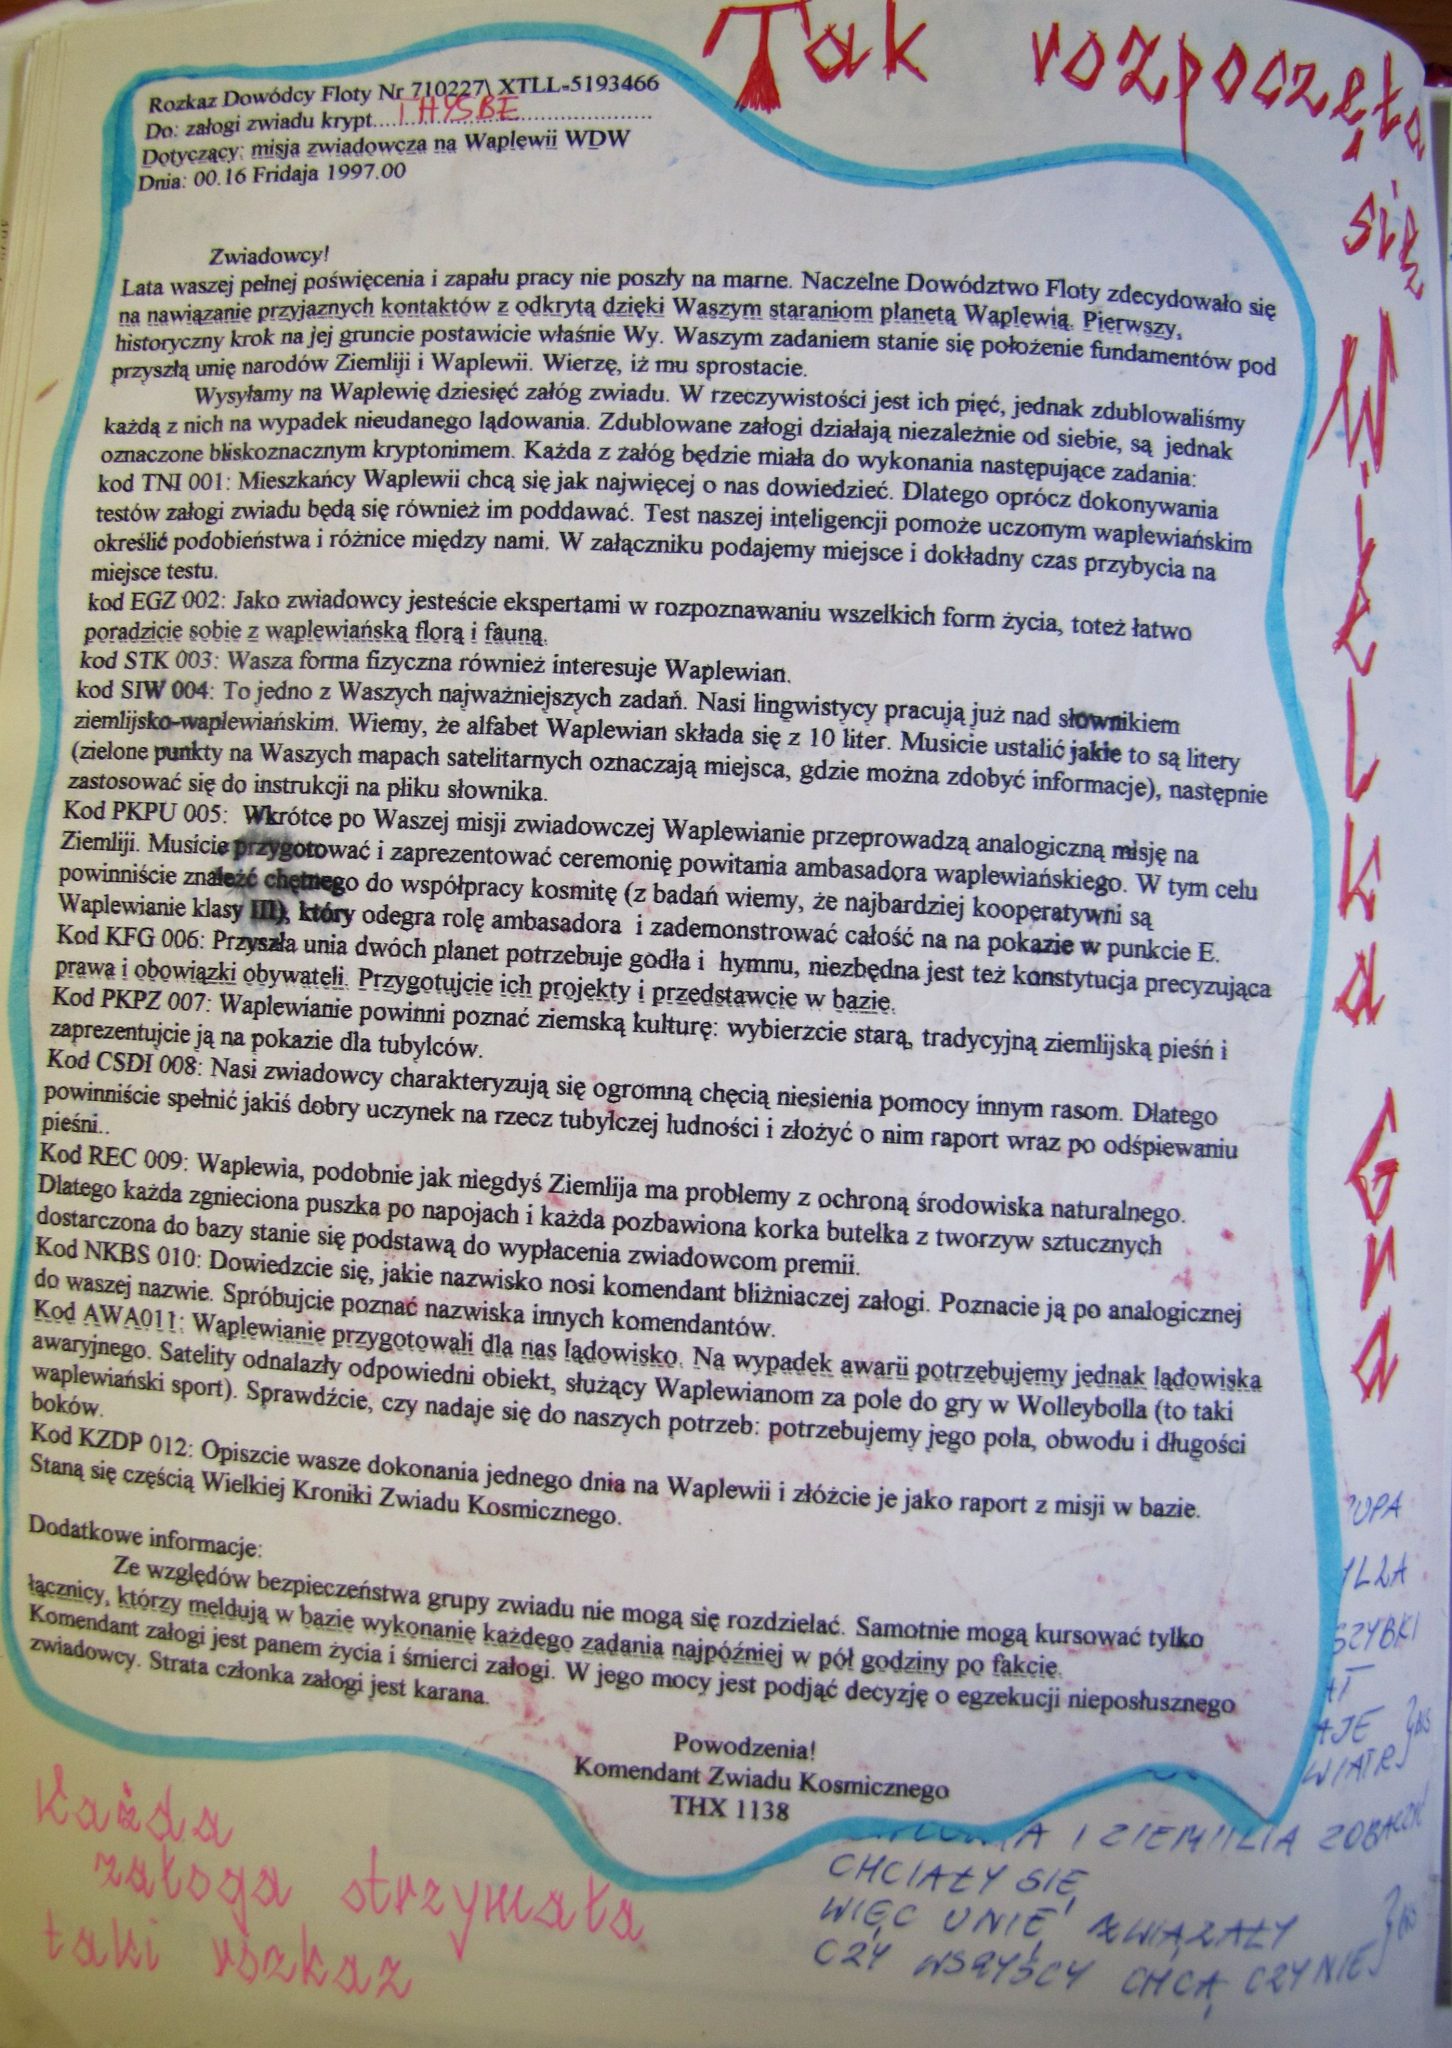 Tak rozpoczęła
się
Wielka
Gra
Rozkaz Dowódcy Floty Nr 710227\ XTLL-5193466
Do: załogi zwiadu krypt....THYSBE....................
Dotyczący: misja zwiadowcza na Waplewii WDW
Dnia: 00.16 Fridaja 1997.00
Zwiadowcy!
Lata waszej pełnej poświęcenia i zapału pracy nie poszły na marne. Naczelne Dowództwo Floty zdecydowało się
na nawiązanie przyjaznych kontaktów z odkrytą dzięki Waszym staraniom planetą Waplewią. Pierwszy,
historyczny krok na jej gruncie postawicie właśnie Wy. Waszym zadaniem stanie się położenie fundamentów pod
przyszłą unię narodów Ziemliji i Waplewii. Wierzę, iż mu sprostacie.
Wysyłamy na Waplewię dziesięć załóg zwiadu. W rzeczywistości jest ich pięć, jednak zdublowaliśmy
każdą z nich na wypadek nieudanego lądowania. Zdublowane załogi działają niezależnie od siebie, są jednak
oznaczone bliskoznacznym kryptonimem. Każda z załóg będzie miała do wykonania następujące zadania:
kod TNI 001: Mieszkańcy Waplewii chcą się jak najwięcej o nas dowiedzieć. Dlatego oprócz dokonywania
testów załogi zwiadu będą się również im poddawać. Test naszej inteligencji pomoże uczonym waplewiańskim
określić podobieństwa i różnice między nami. W załączniku podajemy miejsce i dokładny czas przybycia na
miejsce testu.
kod EGZ 002: Jako zwiadowcy jesteście ekspertami w rozpoznawaniu wszelkich form życia, toteż łatwo
poradzicie sobie z waplewiańską florą i fauną.
kod STK 003: Wasza forma fizyczna również interesuje Waplewian.
kod SIW 004: To jedno z Waszych najważniejszych zadań. Nasi lingwistycy pracują już nad słownikiem
ziemlijsko-waplewiańskim. Wiemy, że alfabet Waplewian składa się z 10 liter. Musicie ustalić jakie to są litery
(zielone punkty na Waszych mapach satelitarnych oznaczają miejsca, gdzie można zdobyć informacje), następnie
zastosować się do instrukcji na pliku słownika.
Kod PKPU 005: Wkrótce po Waszej misji zwiadowczej Waplewianie przeprowadzą analogiczną misję na
Ziemliji. Musicie przygotować i zaprezentować ceremonię powitania ambasadora waplewiańskiego. W tym celu
powinniście znaleźć chętnego do współpracy kosmitę (z badań wiemy, że najbardziej kooperatywni są
Waplewianie klasy III), który odegra rolę ambasadora i zademonstrować całość na na pokazie w punkcie E.
Kod KFG 006: Przyszła unia dwóch planet potrzebuje godła i hymnu, niezbędna jest też konstytucja precyzująca
prawa i obowiązki obywateli. Przygotujcie ich projekty i przedstawcie w bazie.
Kod PKPZ 007: Waplewianie powinni poznać ziemską kulturę: wybierzcie starą, tradycyjną ziemlijską pieśń i
zaprezentujcie ją na pokazie dla tubylców.
Kod CSDI 008: Nasi zwiadowcy charakteryzują się ogromną chęcią niesienia pomocy innym rasom. Dlatego
powinniście spełnić jakiś dobry uczynek na rzecz tubylczej ludności i złożyć o nim raport wraz po odśpiewaniu
pieśni..
Kod REC 009: Waplewia, podobnie jak niegdyś Ziemlija ma problemy z ochroną środowiska naturalnego.
Dlatego każda zgnieciona puszka po napojach i każda pozbawiona korka butelka z tworzyw sztucznych
dostarczona do bazy stanie się podstawą do wypłacenia zwiadowcom premii.
Kod NKBS 010: Dowiedzcie się, jakie nazwisko nosi komendant bliźniaczej załogi. Poznacie ją po analogicznej
do waszej nazwie. Spróbujcie poznać nazwiska innych komendantów.
Kod AWA011: Waplewianie przygotowali dla nas lądowisko. Na wypadek awarii potrzebujemy jednak lądowiska
awaryjnego. Satelity odnalazły odpowiedni obiekt, służący Waplewianom za pole do gry w Wolleybolla (to taki
waplewiański sport). Sprawdźcie, czy nadaje się do naszych potrzeb: potrzebujemy jego pola, obwodu i długości
boków.
Kod KZDP 012: Opiszcie wasze dokonania jednego dnia na Waplewii i złóżcie je jako raport z misji w bazie.
Staną się częścią Wielkiej Kroniki Zwiadu Kosmicznego.
Dodatkowe informacje:
Ze względów bezpieczeństwa grupy zwiadu nie mogą się rozdzielać. Samotnie mogą kursować tylko
łącznicy, którzy meldują w bazie wykonanie każdego zadania najpóźniej w pół godziny po fakcie.
Komendant załogi jest panem życia i śmierci załogi. W jego mocy jest podjąć decyzję o egzekucji nieposłusznego
zwiadowcy. Strata członka załogi jest karana.
Powodzenia!
Komendant Zwiadu Kosmicznego
THX 1138
Każda
załoga otrzymała
taki rozkaz
SZYBKI
WIATR
I ZIEMIILIA ZOBACZYĆ
CHCIAŁY SIĘ
WIĘC UNIĘ ZWIĄZAŁY
CZY WSZYŚCY CHCĄ CZY NIE